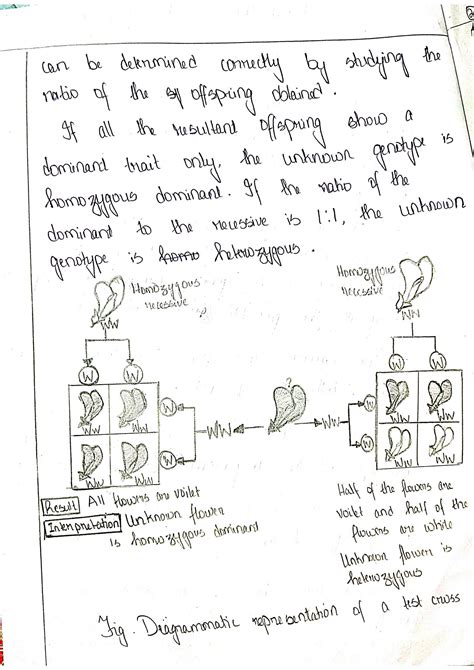 can be determined correctly by studying the
ratio of the offspring obtained.
If all the resultant offspring show a
dominant trait only, the unknown genotype is
homozygous dominant. If the ratio of the
dominant to the recessive is 1:1, the unknown
genotype is homo heterozygous.
Homozygous
recessive
ww
Homozygous
recessive
ww
W W
W W
Ww Ww
Ww Ww
W
W
WW
?
Ww
Ww Ww
ww ww
Result All flowers are voilet
Interpretation Unknown flower
is homozygous dominant
Half of the flowers are
voilet and half of the
flowers are while
Unknown flower is
heterozygous
Fig. Diagrammatic representation of a test cross